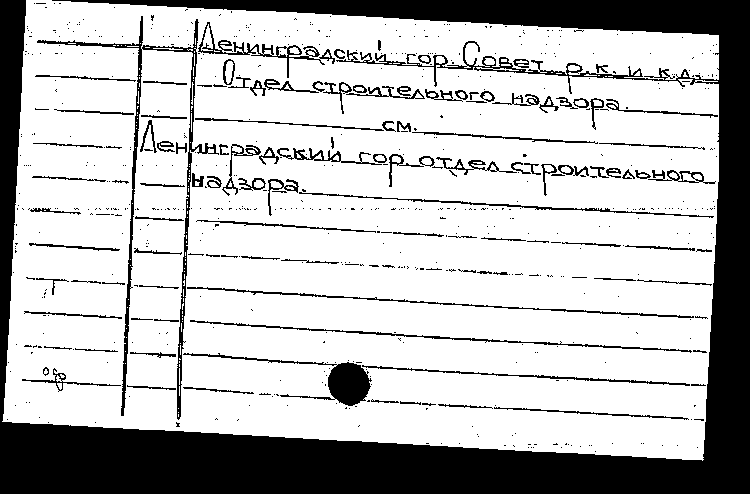 Ленинградский гор. Совет р.к. и к.д.
Отдел строительного надзора.
см.
Ленинградский гор. отдел строительного
надзора.